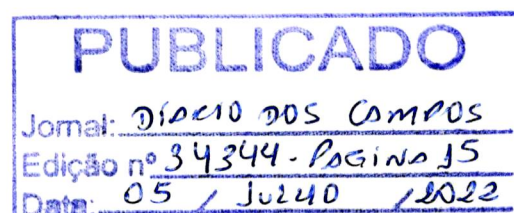 PUBLICADO
Jornal: DIÁRIO DOS CAMPOS
Edição nº 34344 - PAGINA 15
Data: 05 / JULHO / 2022